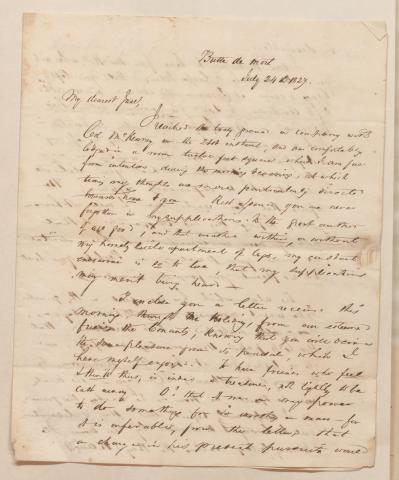 Butte de mort
July 24th 1827.
My dearest Jane,
I reached the treaty ground in company with
Col. McKenney on the 21st instant, and am comfortably
lodged in a room twelve feet square, where I am free
from intrusion, during the morning & evening, at which
times my thoughts are more particularly directed
towards home & you. Rest assured you are never
forgotten in my supplications to the great author
of all good; and that whether within, or without
my homely little apartment of logs, my constant
is to so live, that my supplications
may merit being heard —
I enclose you a letter received this
morning through the from our esteemed
friend the , knowing that you will derive
the same pleasure from its perusal, which I
have myself enjoyed. To have friends who feel
& think thus, is indeed a treasure, not lightly to be
cast away. O! that it was in my power
to do something for so worthy a man — for
it is inferable, from the letter, that
a change in his present pursuits would